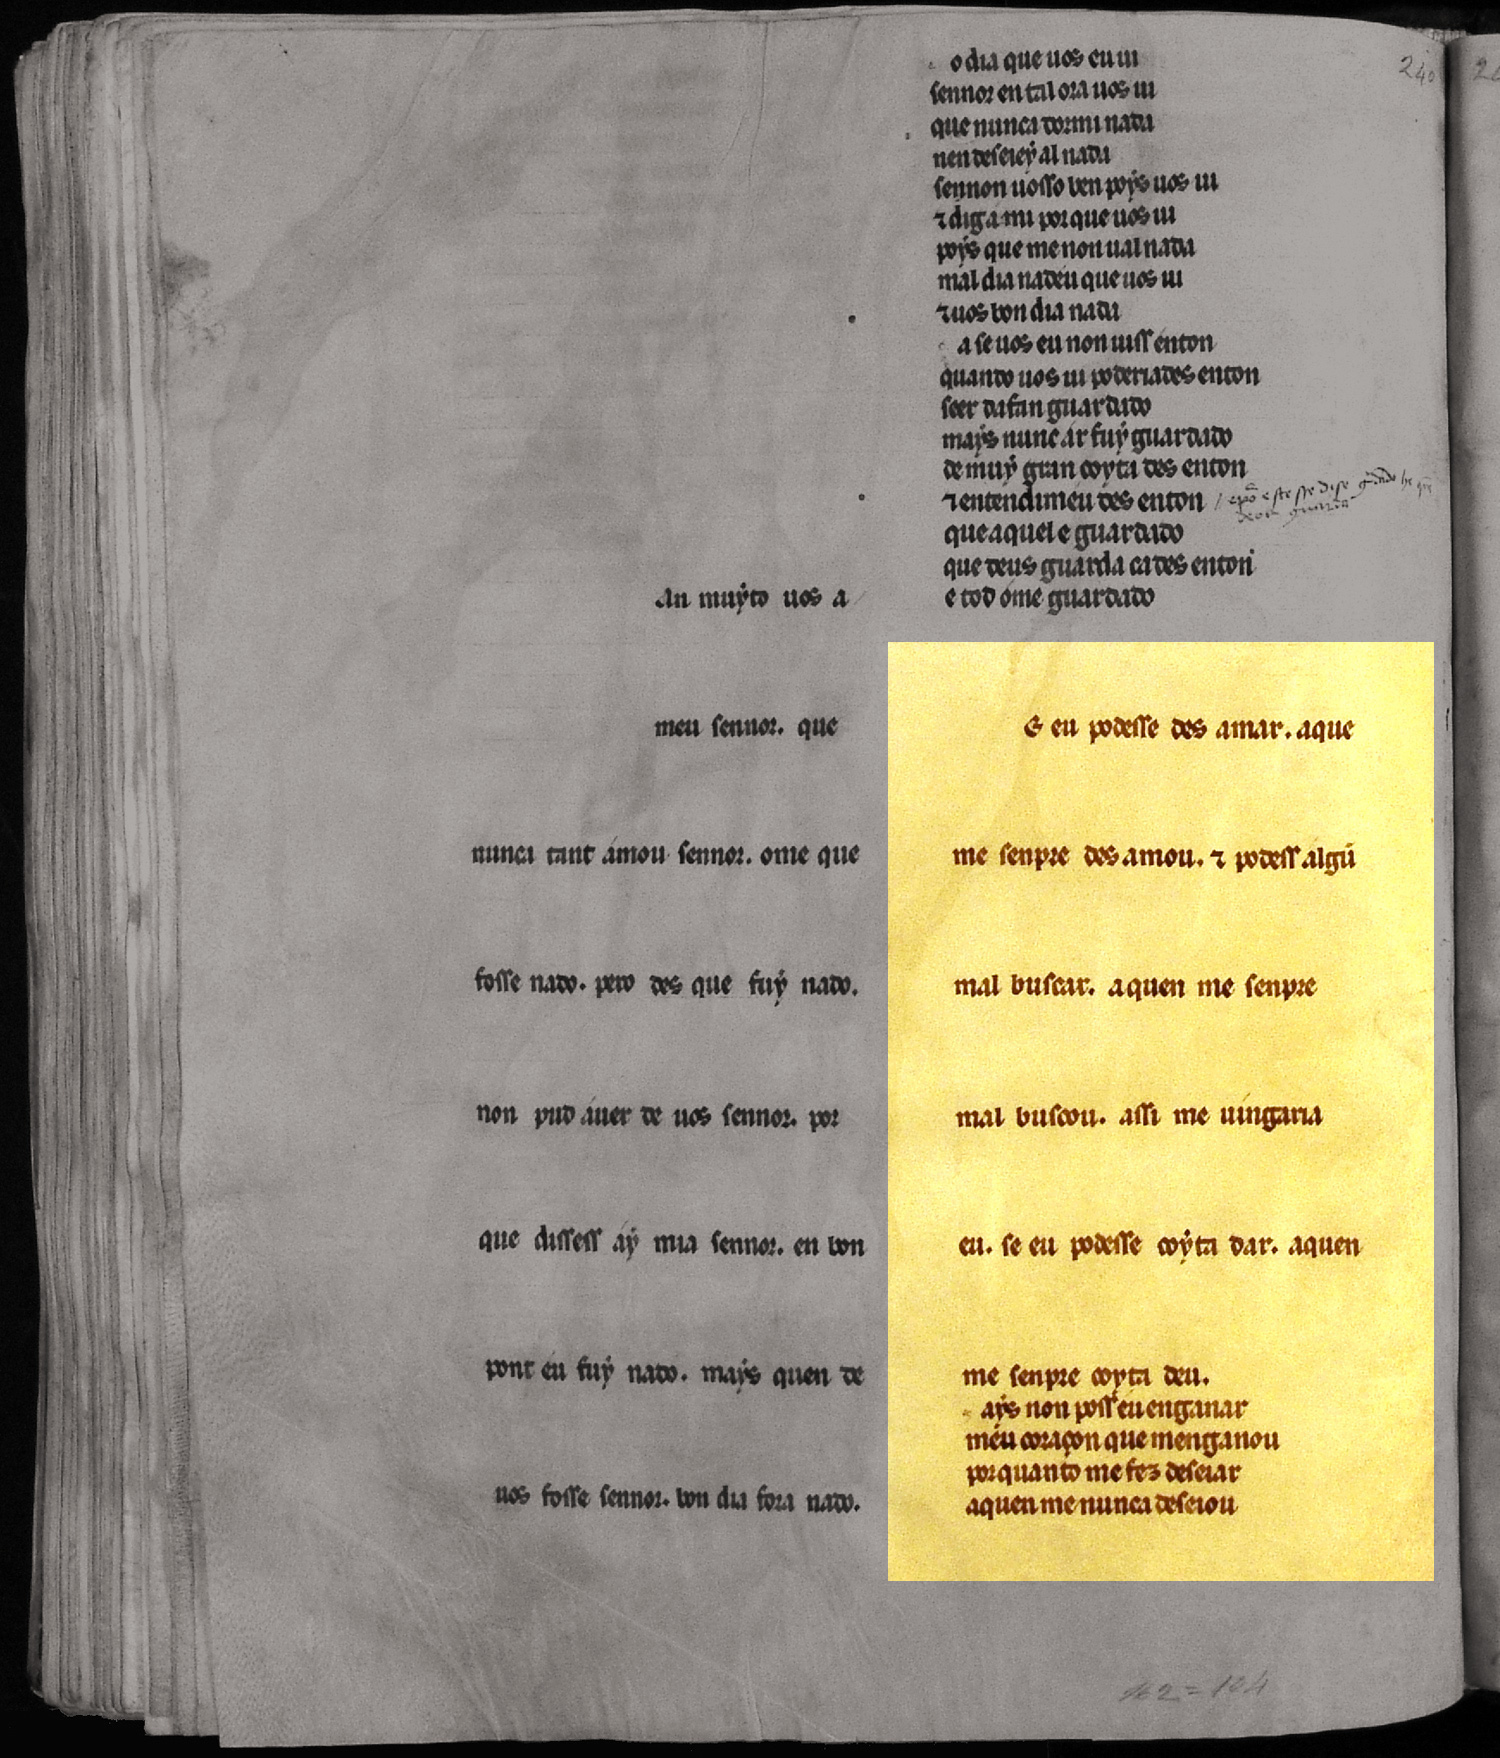 o dia que uos eu ui
sennor en tal ora uos ui
que nunca dormi nada
nen deseieẏ al nada
sennon uosso ben poẏs uos ui
⁊ diga mi por que uos ui
poẏs que me non ual nada
mal dia nadeu que uos ui
⁊ uos bon dia nada
a se uos eu non uiss enton
quando uos ui poderiades enton
seer dafan guardado
maẏs nunc ar fuẏ guardado
de muẏ gran coyta des enton
⁊ entendimeu des enton
que aquel e guardado
que deus guarda ca des enton
e tod óme guardado
an muẏto uos a
meu sennor. que
nunca tant ámou sennor. ome que
fosse nado. pero des que fuẏ nado.
non pud áuer de uos sennor. por
que dissess áẏ mia sennor. en bon
pont eu fuẏ nado. maẏs quen de
uos fosse sennor. bon dia fora nado.
E eu podesse des amar. aque
me senpre des amou. ⁊ podess algũ
mal buscar. aquen me senpre
mal buscou. assi me uingaria
eu. se eu podesse coẏta dar. aquen
me senpre coyta deu.
aẏs non poss eu enganar
méu coraçon que menganou
por quanto me fez deseiar
aquen me nunca deseiou
240